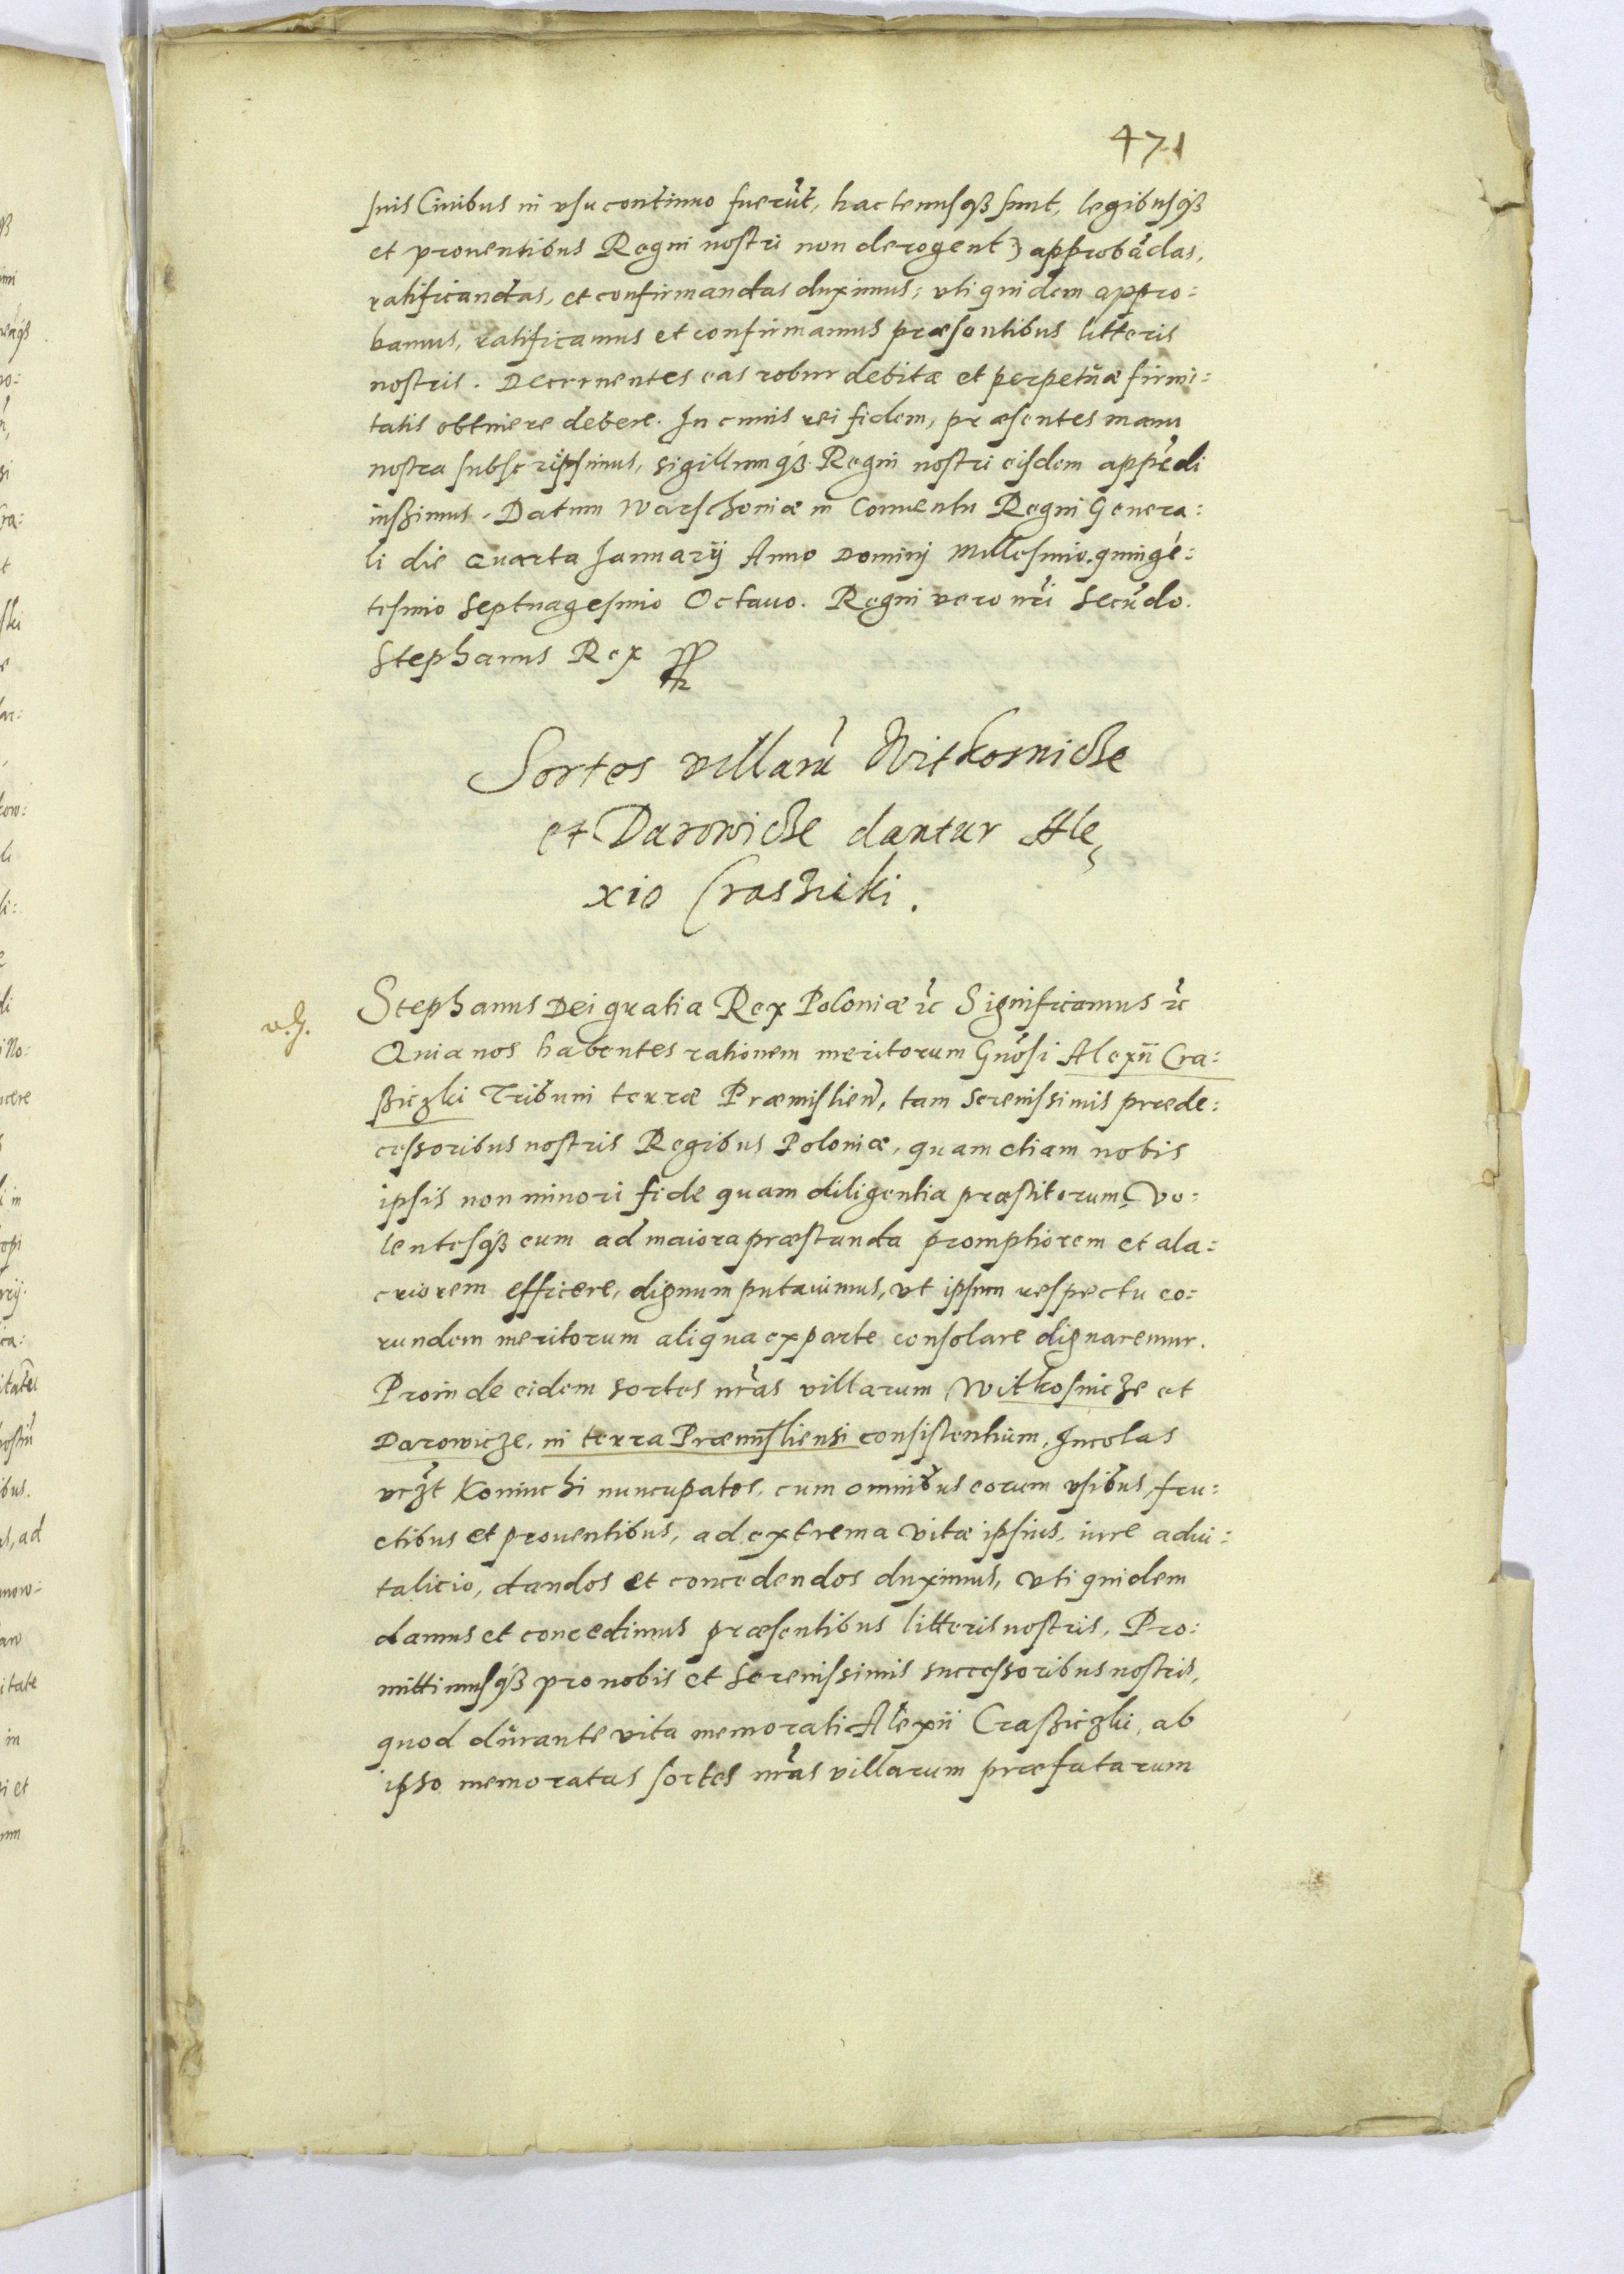 471
suis Ciuibus in vsu continuo fuerūt, hactenusq́ꝫ sunt, legibusq́ꝫ
et prouentibus Regni nostri non derogent) approbādas,
ratificandas, et confirmandas duximus; vti quidem appro:
bamus, ratificamus et confirmamus præsentibus litteris
nostris. Decernentes eas robur debitæ et perpetuæ firmi:
tatis obtinere debere. In cuius rei fidem, præsentes manu
nostra subscripsimus, sigillumq́ꝫ Regni nostri eisdem appēdi
iussimus. Datum Warschouiæ in Conuentu Regni Genera:
li die Quarta Januarij Anno Dominj Millesimo quingē:
tesimo Septuagesimo Octauo. Regni vero nr̄i Secūdo.
Stephanus Rex
Sortes villarū Witkosnicze
et Darowicze dantur Ale
xio Crasziczki.
v.g.
Stephanus Dei gratia Rex Poloniæ ꝛc Significamus ꝛc
Quia nos habentes rationem meritorum Gnōsi Alexii Cra:
ßiczki Tribuni terræ Præmislien̄, tam Serenissimis præde:
cessoribus nostris Regibus Poloniæ, quam etiam nobis
ipsis non minori fide quam diligentia præstitorum, Vo:
lentesq́ꝫ eum ad maiora præstanda promptiorem et ala:
criorem efficere, dignum putauimus, vt ipsum respectu eo:
rundem meritorum aliqua ex parte consolare dignaremur.
Proinde eidem sortes nr̄as villarum Witkosnicze et
Darowicze, in terra Præmisliensi consistentium, Incolas
vczt Koniuchi nuncupatos, cum omnibus eorum vsibus, fru:
ctibus et prouentibus, ad extrema vitæ ipsius, iure adui:
talicio, dandos et concedendos duximus, Vti quidem
damus et concedimus præsentibus litteris nostris, Pro:
mittimusq́ꝫ pro nobis et Serenissimis successoribus nostris,
quod durante vita memorati Alexii Craßiczki, ab
ipso memoratas sortes nr̄as villarum præfatarum